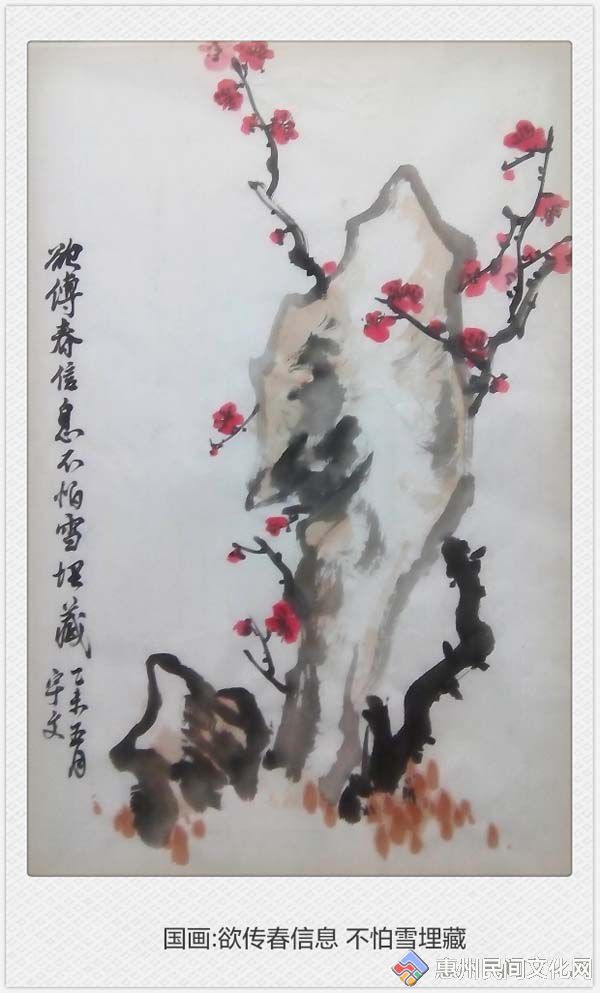 欲傳春信息不怕雪埋藏
乙未五月
宇文
国画:欲传春信息 不怕雪埋藏
惠州民间文化网